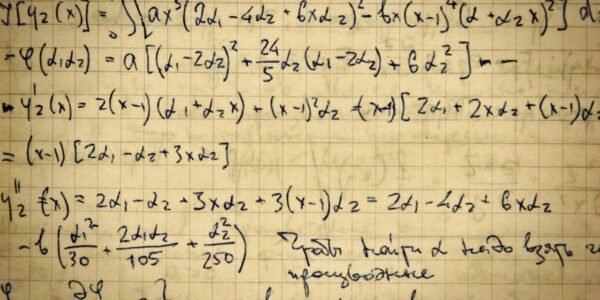 J[y₂(x)] = ∫[ax³(2α₁ - 4α₂ + 6xα₂)² - bx(x-1)⁴(α₁ + α₂x)²] d
- φ(α₁α₂) = a[(α₁-2α₂)² + 24/5 α₂(α₁-2α₂) + 6α₂²] - -
y₂'(x) = 2(x-1)(α₁+α₂x) + (x-1)²α₂ = (x-1)[2α₁ + 2xα₂ + (x-1)α₂
= (x-1)[2α₁ - α₂ + 3xα₂]
y₂''(x) = 2α₁ - α₂ + 3xα₂ + 3(x-1)α₂ = 2α₁ - 4α₂ + 6xα₂
- b(α₁²/30 + 2α₁α₂/105 + α₂²/250) Чтобы найти α надо взять
производные
∂φ